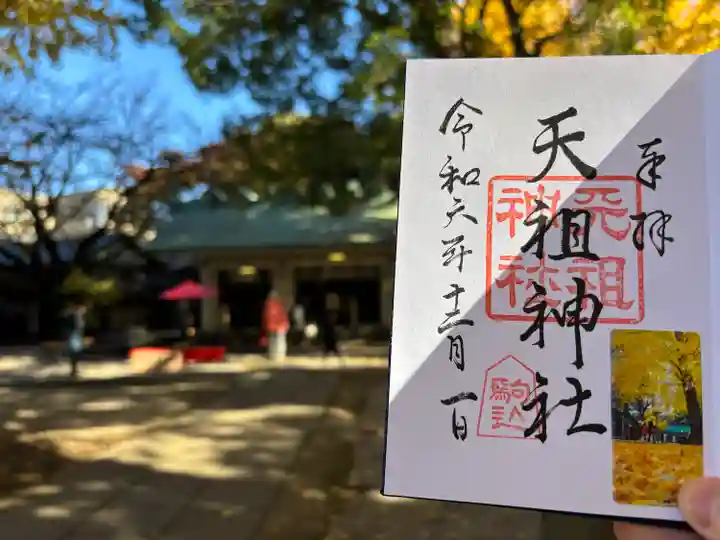 奉拝
天祖神社
天祖神社
駒込
令和六年十二月一日